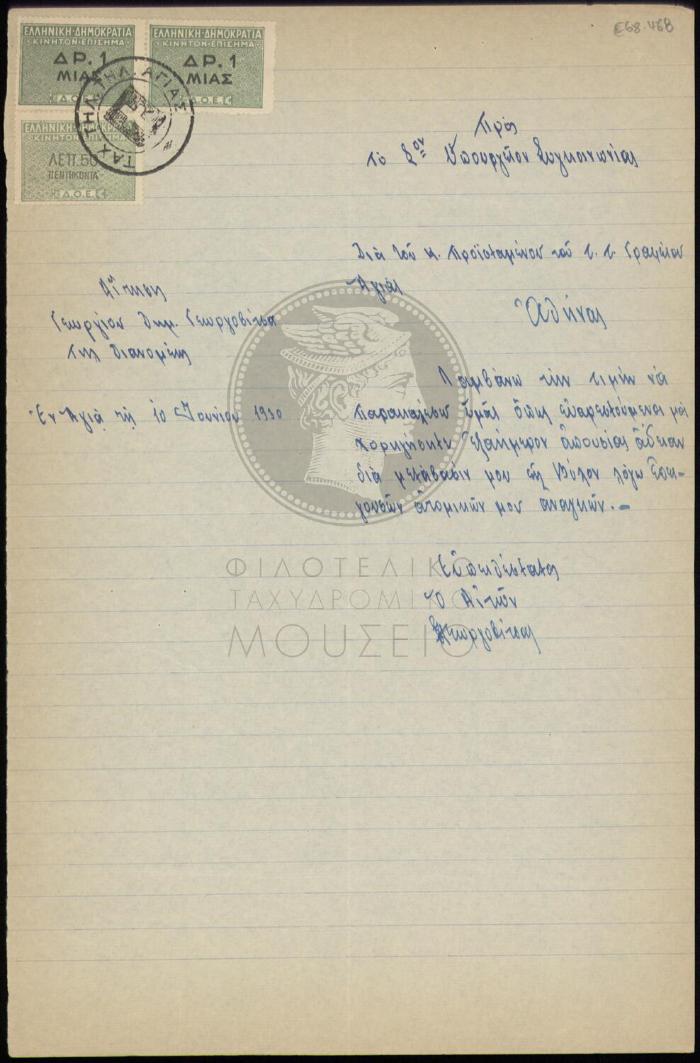 Ε68.46Β
ΕΛΛΗΝΙΚΗ·ΔΗΜΟΚΡΑΤΙΑ
ΚΙΝΗΤΟΝ·ΕΠΙΣΗΜΑ
ΔΡ. 1
ΜΙΑΣ
Δ.Ο.Ε.
ΕΛΛΗΝΙΚΗ·ΔΗΜΟΚΡΑΤΙΑ
ΚΙΝΗΤΟΝ·ΕΠΙΣΗΜΑ
ΔΡ. 1
ΜΙΑΣ
Δ.Ο.Ε.
ΕΛΛΗΝΙΚΗ·ΔΗΜΟΚΡΑΤΙΑ
ΚΙΝΗΤΟΝ·ΕΠΙΣΗΜΑ
ΛΕΠ. 50
ΠΕΝΤΗΚΟΝΤΑ
Δ.Ο.Ε.
ΤΑΧ. ΤΗΛ. ΑΓΙΑΣ
Πρὸς
Τὸ Σον Ὑπουργεῖον Συγκοινωνίας
Διὰ τοῦ κ. Προϊσταμένου τοῦ τ. τ. Γραφείου
Ἀγιᾶς
Ἀθήνας
Αἴτησις
Γεωργίου Δημ. Γεωργοβίτσα
της διανομέως
Ἐν Ἀγιᾷ τῇ 10 Ἰουνίου 1930
Λαμβάνω τὴν τιμὴν νὰ
παρακαλέσω ὑμᾶς ὅπως εὐαρεστούμενοι μοὶ
χορηγήσητε ἑξαήμερον ἀπουσίας ἄδειαν
διὰ μετάβασίν μου εἰς Βόλον λόγω ἐπει-
γουσῶν ἀτομικῶν μου ἀναγκῶν.—
Εὐπειθέστατος
Ὁ Αἰτῶν
Γεωργοβίτσας
ΦΙΛΟΤΕΛΙΚΟ
ΤΑΧΥΔΡΟΜΙΚΟ
ΜΟΥΣΕΙΟ